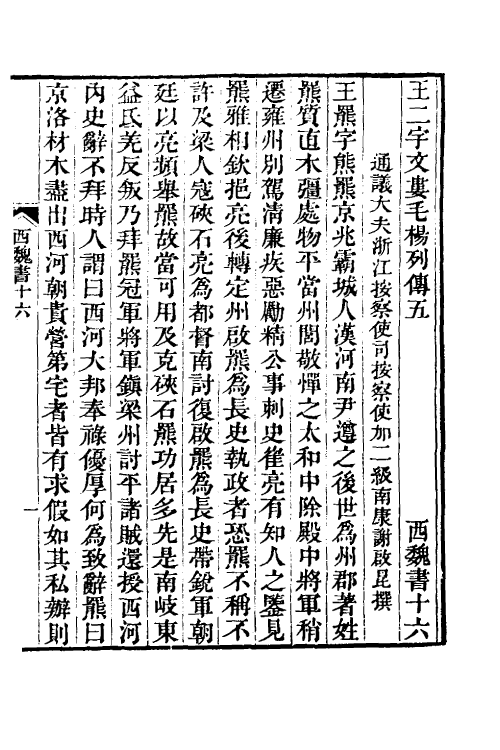 王二宇文婁毛楊列傳五　西魏書十六
通議大夫浙江按察使司按察使加二級南康謝啟昆撰
王羆字熊羆京兆霸城人漢河南尹遵之後世爲州郡著姓
羆質直木彊處物平當州閭敬憚之太和中除殿中將軍稍
遷雍州別駕清廉疾惡勵精公事刺史崔亮有知人之鑒見
羆雅相欽挹亮後轉定州啟羆爲長史執政者恐羆不稱不
許及梁人寇硤石亮爲都督南討復啟羆爲長史帶銳軍朝
廷以亮頻舉羆故當可用及克硤石羆功居多先是南岐東
益氐羌反叛乃拜羆冠軍將軍鎮梁州討平諸賊還授西河
內史辭不拜時人謂曰西河大邦奉祿優厚何爲致辭羆曰
京洛材木盡出西河朝貴營第宅者皆有求假如其私辦則
西魏書十六
一